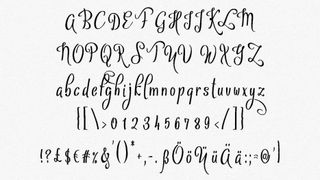 ABCDEFGHIJKLM
NOPQRSTUVWXYZ
abcdefghijklmnopqrstuvwxyz
{[\>0123456789</]}
!?£$€#%&'()*+,-.ßÖöÜüÄä:;=@'